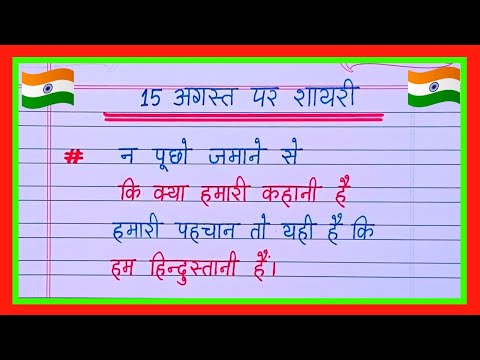 15 अगस्त पर शायरी
# न पूछो जमाने से
कि क्या हमारी कहानी है
हमारी पहचान तो यही है कि
हम हिन्दुस्तानी हैं।